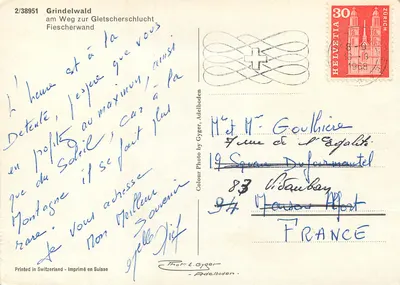 2/38951 Grindelwald
am Weg zur Gletscherschlucht
Fiescherwand
L'heure est à la
Détente, j'espère que vous
en profitez au maximum, ainsi
que du Soleil, car à la
Montagne il se fait plus
rare.
Je vous adresse
Mon Meilleur
Souvenir
Printed in Switzerland - Imprimé en Suisse
Colour Photo by Gyger, Adelboden
30
HELVETIA
ZÜRICH
Mr et Mme Gouthière
7 rue de l'Egalité
19 Square Dufourmantel
83 Vidauban
94 Maisons Alfort
FRANCE
Phot. E. Gyger
Adelboden